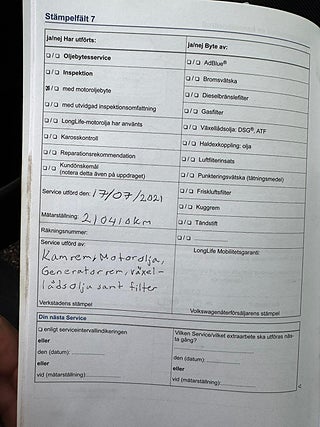 Stämpelfält 7
ja/nej Har utförts:
☐ / ☐ Oljebytesservice
☐ / ☐ Inspektion
☒ / ☐ med motoroljebyte
☐ / ☐ med utvidgad inspektionsomfattning
☐ / ☐ LongLife-motorolja har använts
☐ / ☐ Karosskontroll
☐ / ☐ Reparationsrekommendation
☐ / ☐ Kundönskemål
(notera detta även på uppdraget)
Service utförd den: 17/07/2021
Mätarställning: 21041 0km
Räkningsnummer:
Service utförd av:
Kamrem, Motorolja,
Generatorrem, växel-
lådsolja samt filter
Verkstadens stämpel
ja/nej Byte av:
☐ / ☐ AdBlue®
☐ / ☐ Bromsvätska
☐ / ☐ Dieselbränslefilter
☐ / ☐ Gasfilter
☐ / ☐ Växellådsolja: DSG®, ATF
☐ / ☐ Haldexkoppling: olja
☐ / ☐ Luftfilterinsats
☐ / ☐ Punkteringsvätska (tätningsmedel)
☐ / ☐ Friskluftsfilter
☐ / ☐ Kuggrem
☐ / ☐ Tändstift
☐ / ☐
LongLife Mobilitetsgaranti:
Volkswagenåterförsäljarens stämpel
Din nästa Service
☐ enligt serviceintervallindikeringen
eller
den (datum):
eller
vid (mätarställning):
Vilken Service/vilket extraarbete ska utföras näs-
ta gång?
den (datum):
eller
vid (mätarställning):